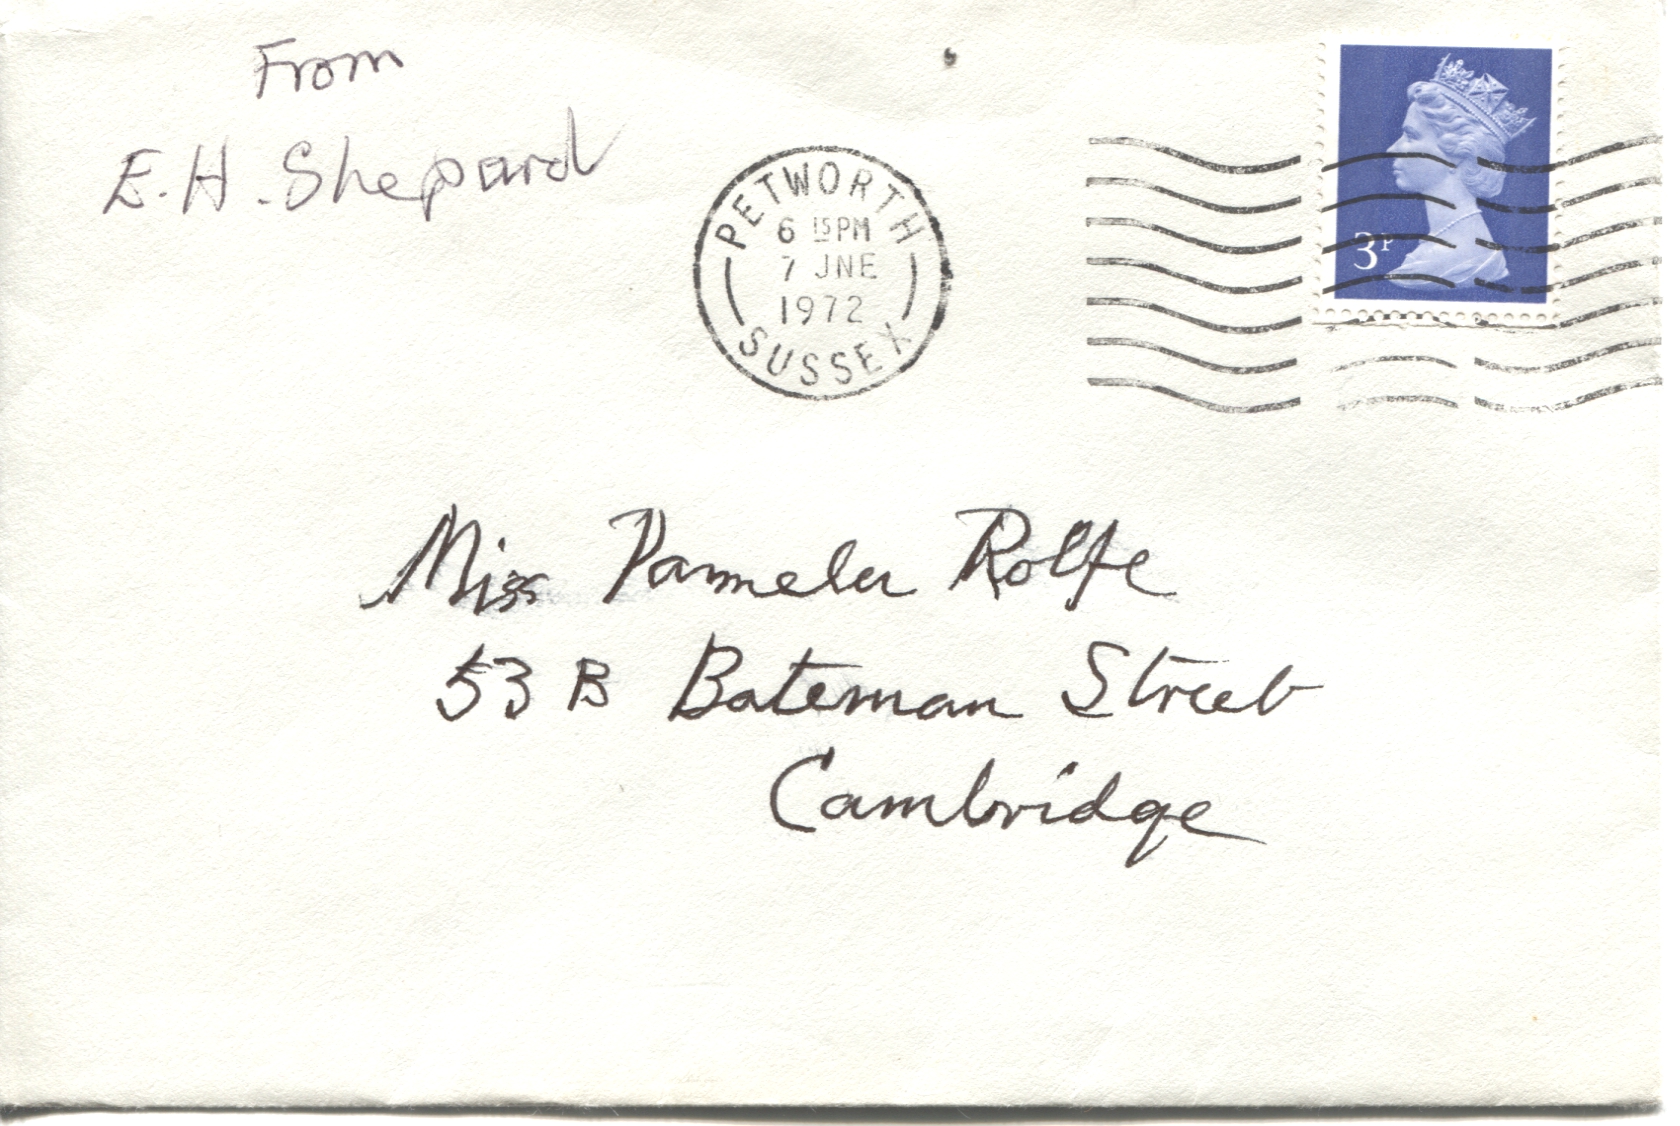 From
E.H. Shepard
PETWORTH
6 15PM
7 JNE
1972
SUSSEX
3P
Miss Pamela Rolfe
53 B Bateman Street
Cambridge